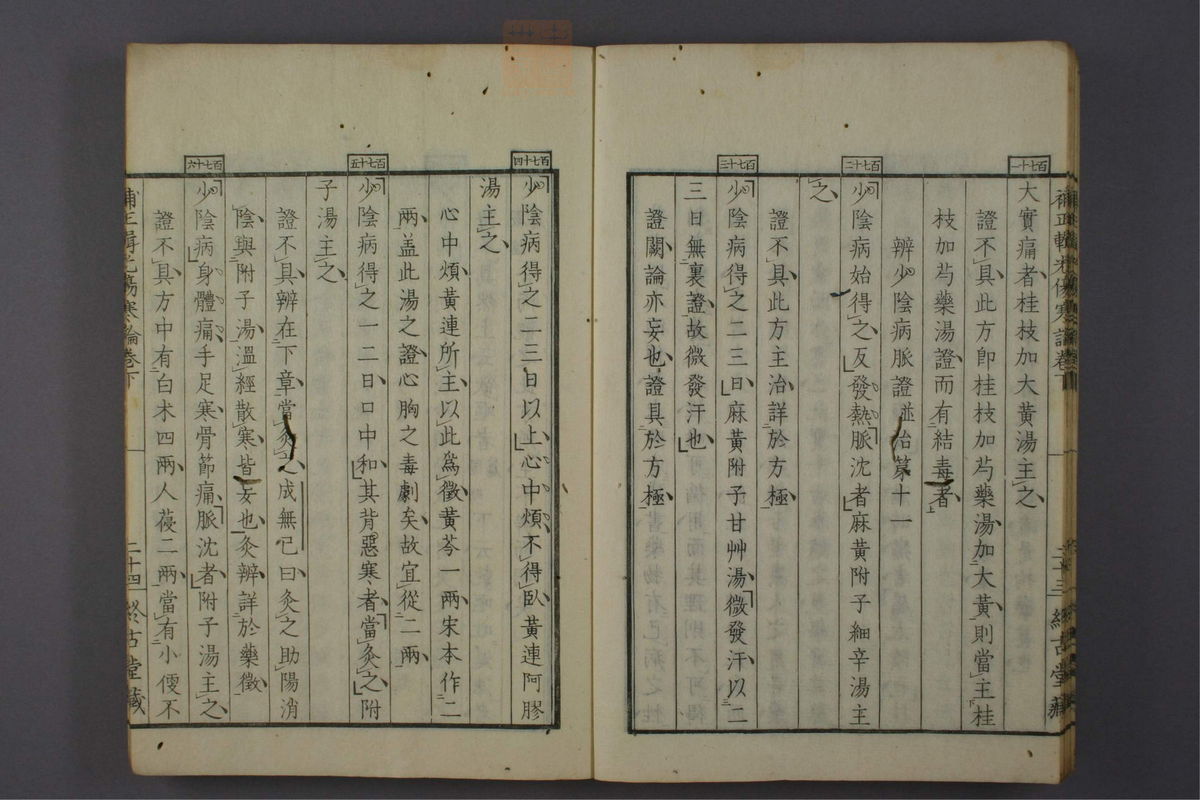 百七十一
大實痛者桂枝加大黃湯主之
證不具此方卽桂枝加芍藥湯加大黃則當主桂
枝加芍藥湯證而有結毒者
辨少陰病脈證並治第十一
百七十二
少陰病始得之反發熱脈沈者麻黃附子細辛湯主
之
證不具此方主治詳於方極
百七十三
少陰病得之二三日麻黃附子甘艸湯微發汗以二
三日無裏證故微發汗也
證闕論亦妄也證具於方極
二十三
百七十四
少陰病得之二三日以上心中煩不得臥黃連阿膠
湯主之
心中煩黃連所主以此爲徵黃芩一兩宋本作二
兩葢此湯之證心胸之毒劇矣故宜從二兩
百七十五
少陰病得之一二日口中和其背惡寒者當灸之附
子湯主之
證不具辨在下章當灸之成無已曰灸之助陽消
陰與附子湯溫經散寒皆妄也灸辨詳於藥徵
百七十六
少陰病身體痛手足寒骨節痛脈沈者附子湯主之
證不具方中有白术四兩人葠二兩當有小便不
補正輯光傷寒論卷下
二十四
終古堂藏